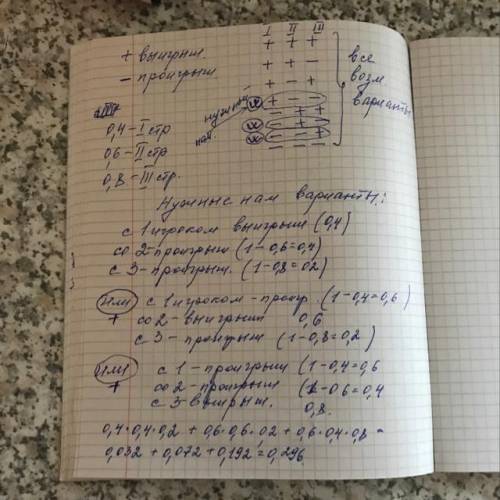 I II III
+ выигрыш.
- проигрыш
+ + +
+ + -
+ - +
+ - -
- + +
- + -
- - +
- - -
все
возм.
варианты
нужный
нам
0,4 - I стр
0,6 - II стр
0,8 - III стр.
Нужные нам варианты:
с 1 игроком выигрыш (0,4)
со 2 - проигрыш (1-0,6=0,4)
с 3 - проигрыш. (1-0,8=0,2)
или с 1 игроком - проигр. (1-0,4=0,6)
+ со 2 - выигрыш 0,6
с 3 - проигрыш (1-0,8=0,2)
или с 1 - проигрыш (1-0,4=0,6
+ со 2 - проигрыш (1-0,6=0,4
с 3 выигрыш. 0,8.
0,4·0,4·0,2 + 0,6·0,6·0,2 + 0,6·0,4·0,8 =
0,032 + 0,072 + 0,192 = 0,296